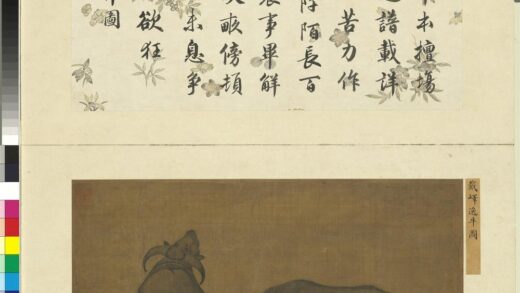 本擅場
譜載詳
苦力作
陌長百
事畢解
畝傍頓
未息爭
欲狂
圖
戴嶧逸牛圖